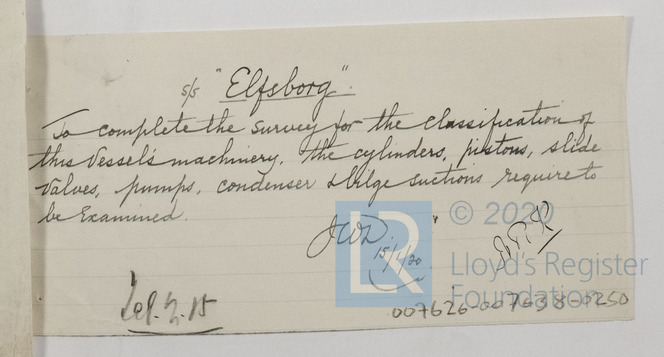 s/s "Elfsborg".
To complete the survey for the classification of
this Vessel's machinery. The cylinders, pistons, slide
valves, pumps, condenser & bilge suctions require to
be Examined.
JWD.
15/1/20
© 2020
LR
Lloyd's Register
Foundation
007626-007638-0250